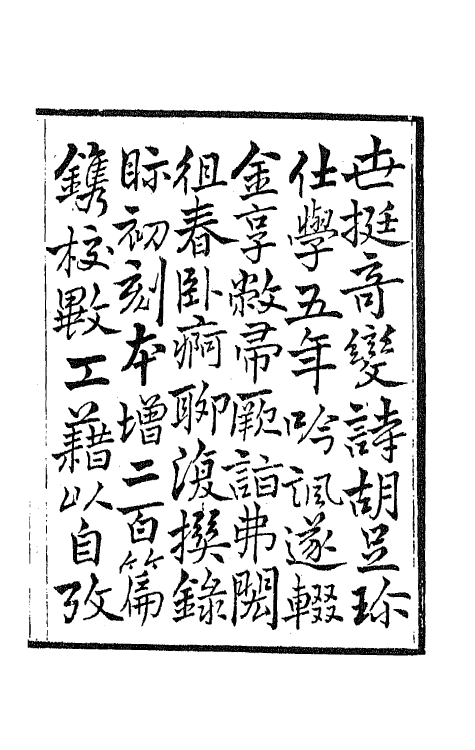 世挺奇變詩胡足珎
仕學五年吟諷遂輟
金享敝帚厥詣弗閎
徂春卧痾聊復撰錄
眎初刻本增二百篇
鐫校㪤工藉以自攷